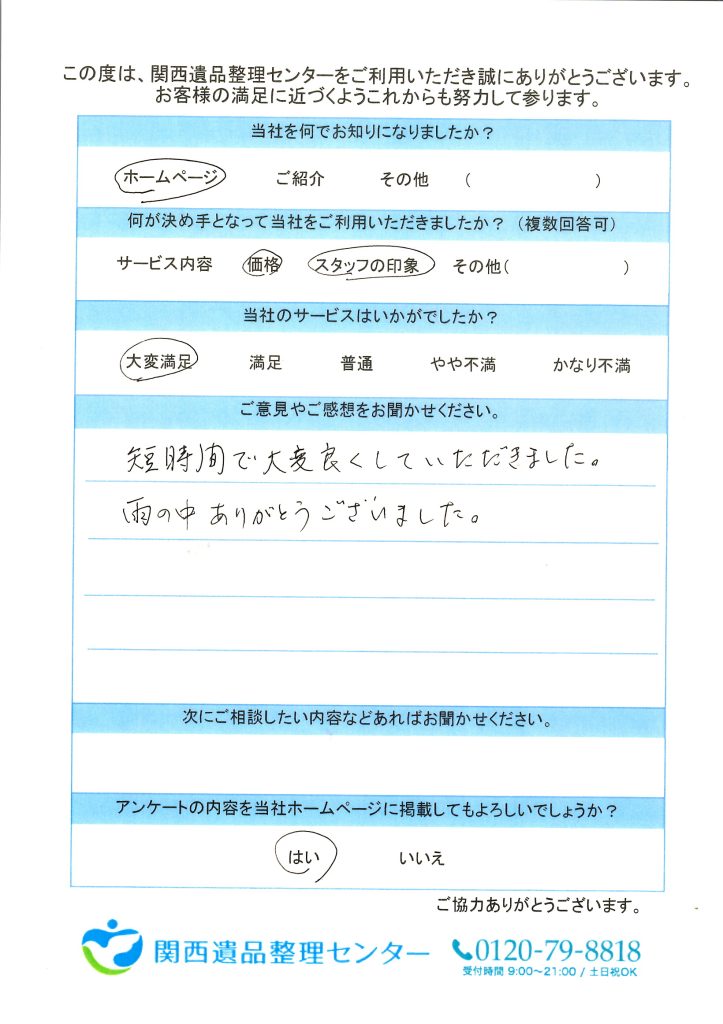 この度は、関西遺品整理センターをご利用いただき誠にありがとうございます。
お客様の満足に近づくようこれからも努力して参ります。
当社を何でお知りになりましたか？
ホームページ ご紹介 その他 （ ）
何が決め手となって当社をご利用いただきましたか？（複数回答可）
サービス内容 価格 スタッフの印象 その他（ ）
当社のサービスはいかがでしたか？
大変満足 満足 普通 やや不満 かなり不満
ご意見やご感想をお聞かせください。
短時間で大変良くしていただきました。
雨の中ありがとうございました。
次にご相談したい内容などあればお聞かせください。
アンケートの内容を当社ホームページに掲載してもよろしいでしょうか？
はい いいえ
ご協力ありがとうございます。
関西遺品整理センター 0120-79-8818
受付時間 9:00〜21:00 / 土日祝OK